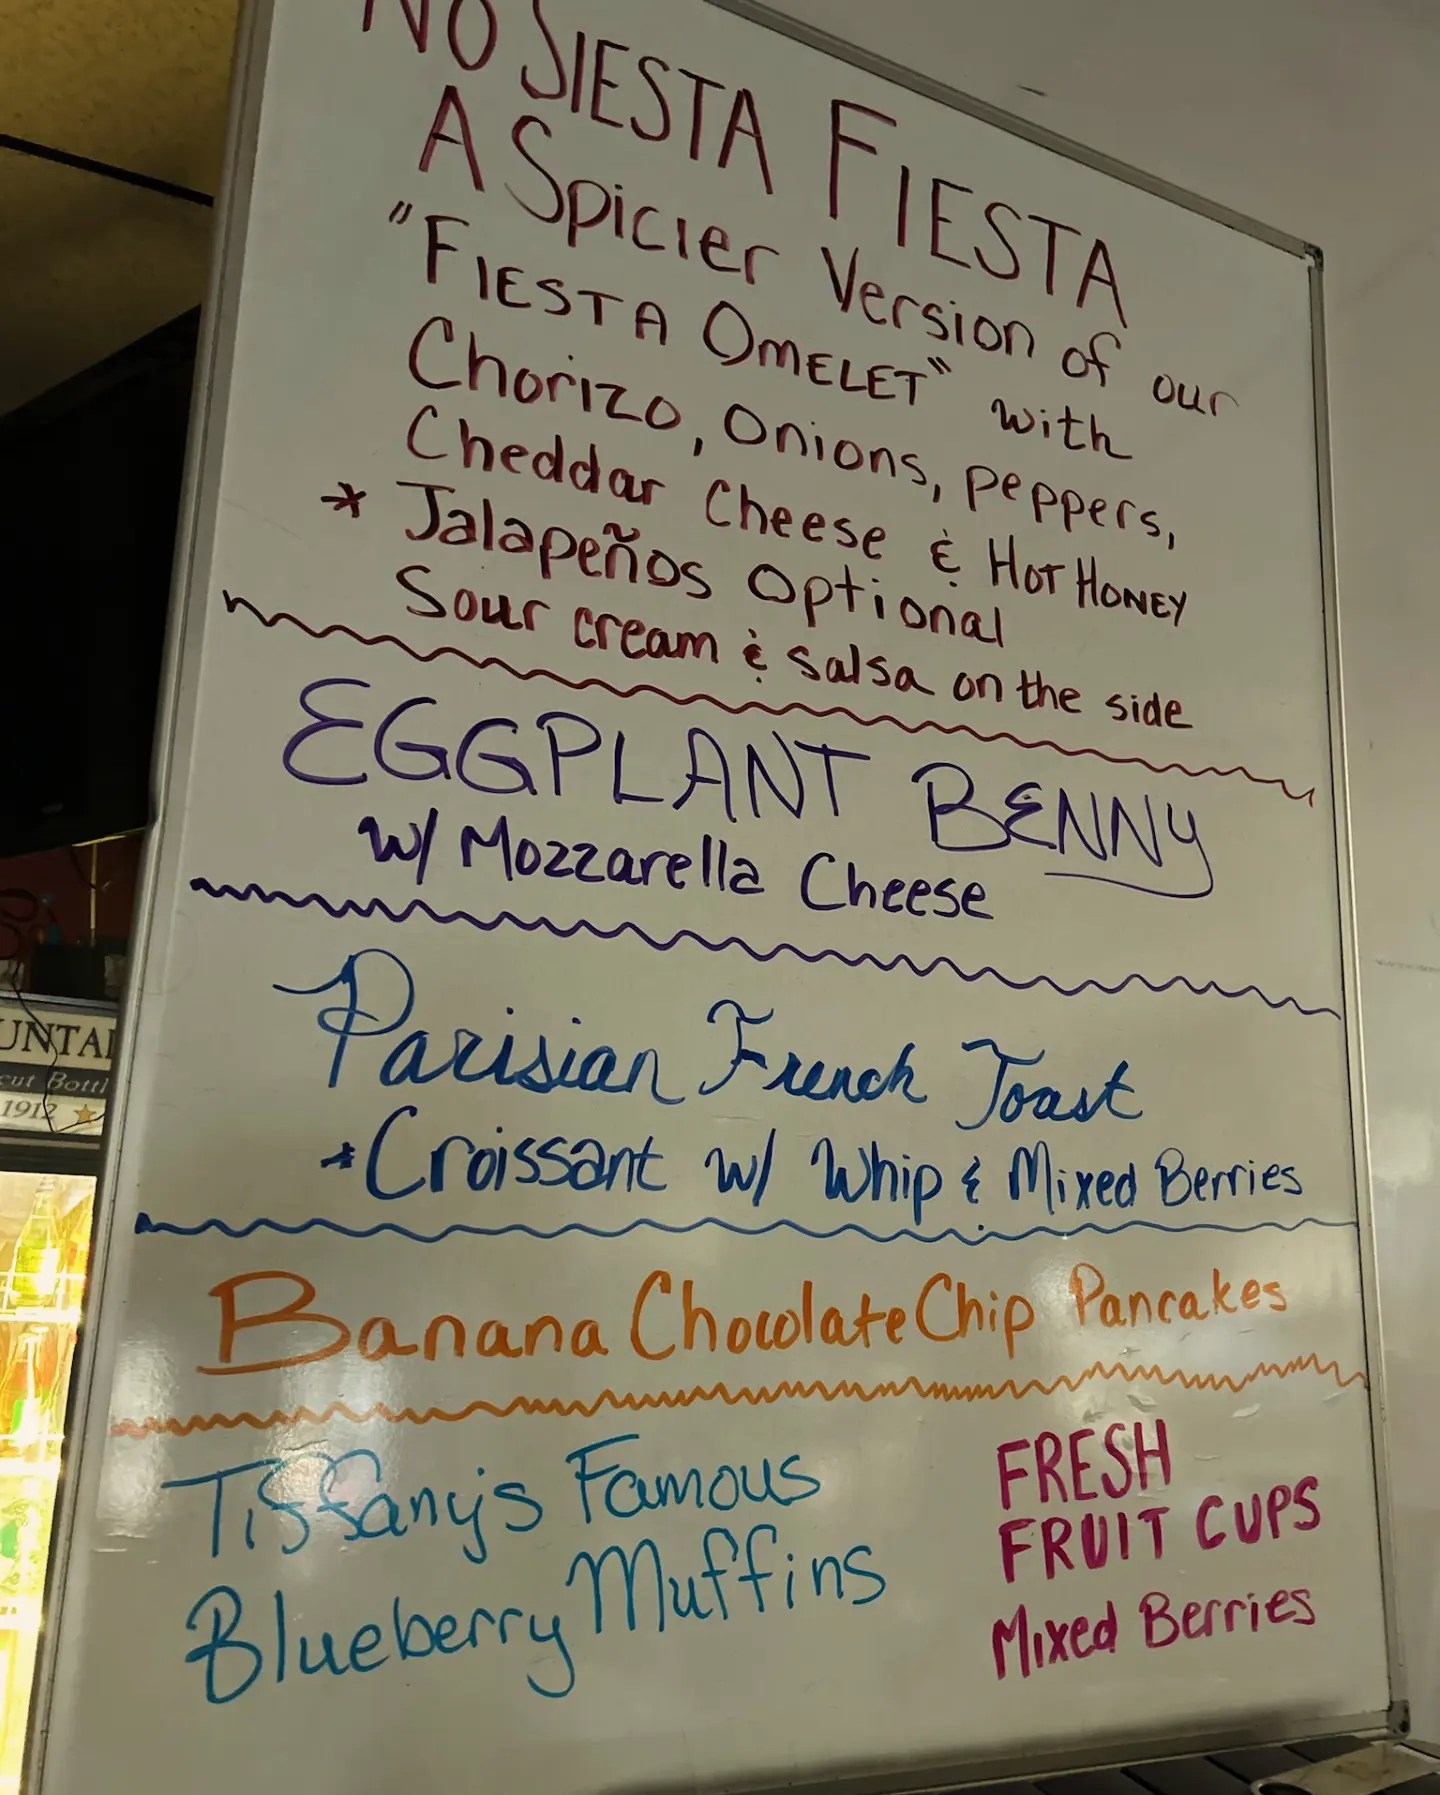 NO SIESTA FIESTA
A Spicier Version of our
"FIESTA OMELET" with
Chorizo, Onions, peppers,
Cheddar Cheese & HOT HONEY
* Jalapeños Optional
Sour cream & salsa on the side
EGGPLANT BENNY
w/ Mozzarella Cheese
Parisian French Toast
*Croissant w/ Whip & Mixed Berries
Banana Chocolate Chip Pancakes
Tiffany's Famous
Blueberry Muffins
FRESH
FRUIT CUPS
Mixed Berries
1912